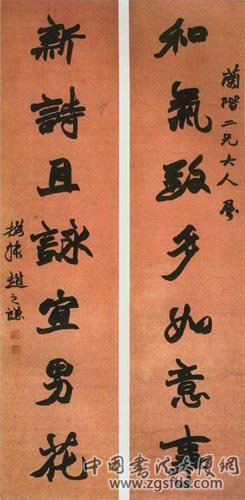 蘭階二兄大人属
和氣致多如意事
新詩且詠宜男花
撝叔趙之謙
中国书法大厦网
www.zgsfds.com